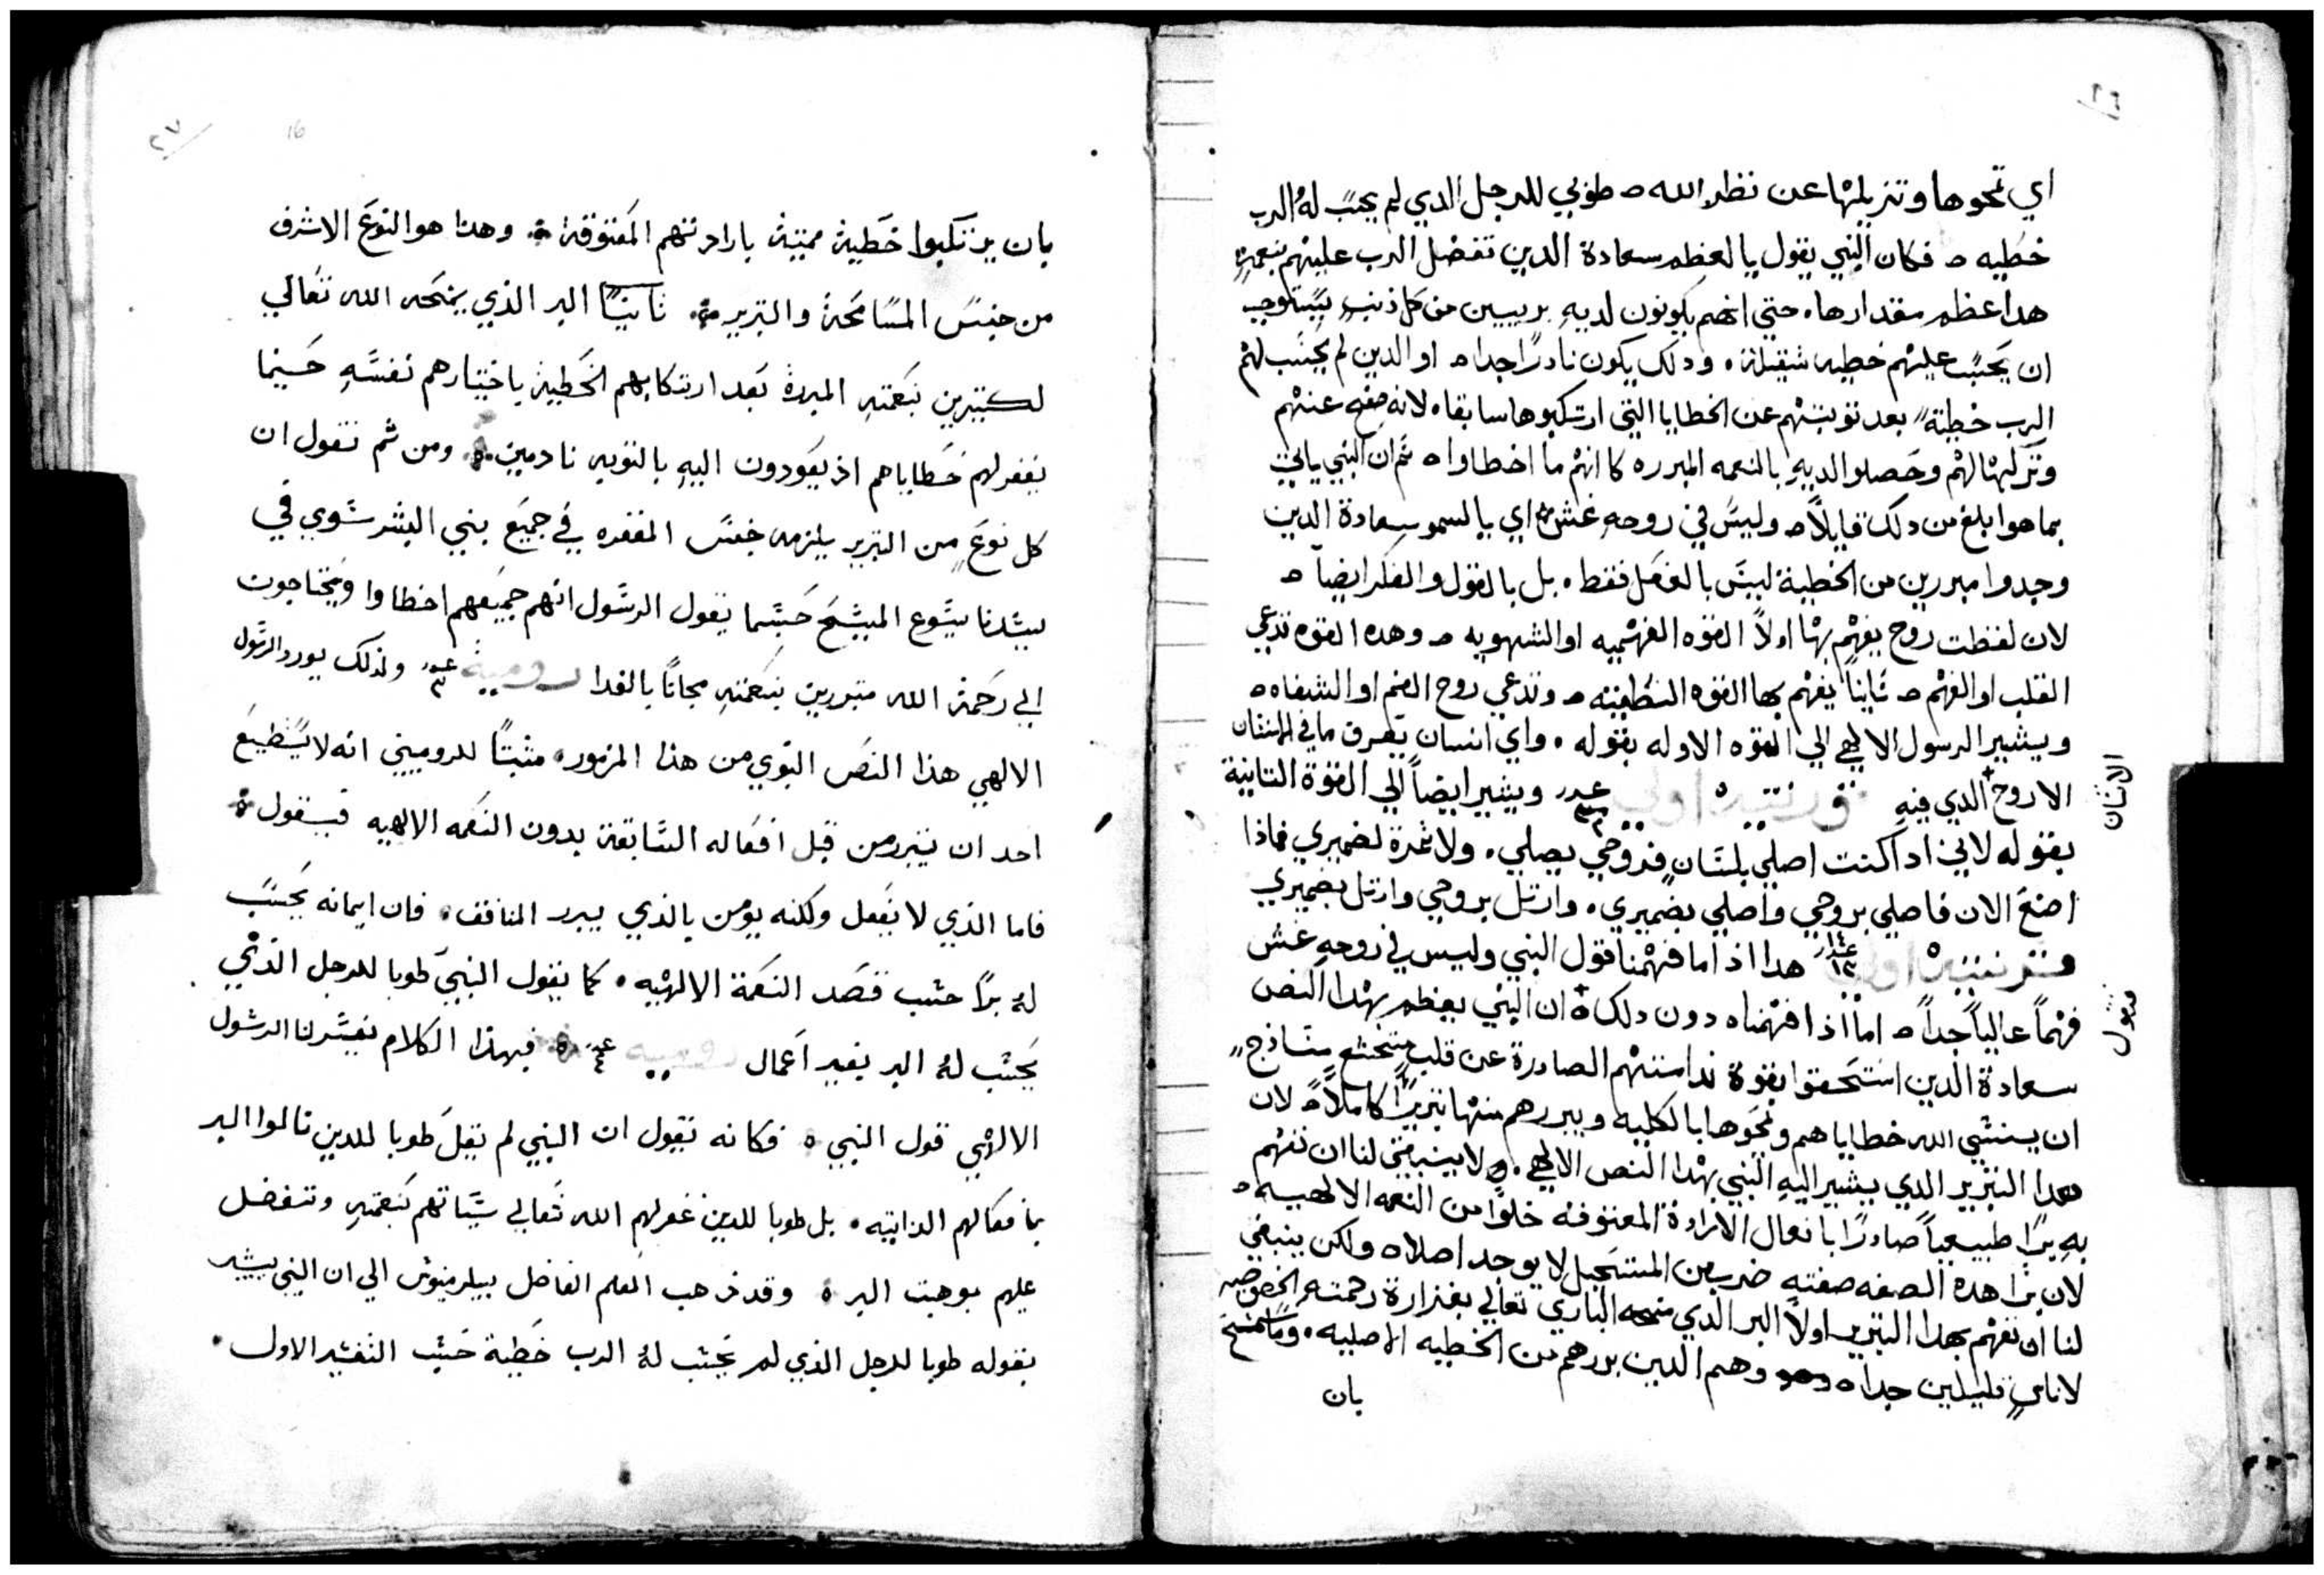 ٢٦
اي تمحوها وتزيلها عن نظر الله ه طوبي للرجل الدي لم يحسب لهُ الرب
خطيه ه فكان النبي يقول يا لعظم سعادة الدين تفضل الرب عليهم بنعمةٍ
هدا عظم مقدارها. حتي انهم يكونون لديهِ بريين من كل ذنبٍ يستوجب
ان يحسب عليهم خطيه ثقيلة. ودلك يكون نادرًا جدا ه او الدين لم يحسب لهم
الرب خطيةً بعد توبتهم عن الخطايا التي ارتكبوها سابقا. لانه صفح عنهم
وتركها لهم وحصلوا لديهِ بالنعمه المبرره كانهم ما اخطاوا ه ثم ان النبي ياتي
بما هو ابلغ من دلك قايلاً ه وليس في روحهِ غش ه اي يا لسمو سعادة الدين
وجدوا مبررين من الخطية ليس بالفعل فقط. بل بالقول والفكر ايضاً ه
لان لفظت روح يفهم بها اولاً القوه الفهميه او الشهويه ه وهده القوه تدعي
القلب او الفهم ه ثانياً يفهم بها القوه النطقيه ه وتدعي روح الفم او الشفاه ه
ويشير الرسول الالهي الي القوه الاوله بقوله. واي انسان يعرف ما في الانسان
الانسان
الا روح الدي فيهِ قورنتيه اولي عدد ويشير ايضاً الي القوة التانية
بقوله لاني ادا كنت اصلي بلسانٍ فروحي يصلي. ولا ثمرة لضميري فماذا
اصنع الان فاصلي بروحي واصلي بضميري. وارتل بروحي وارتل بضميري
قورنتيه اولي ١٤ عدد هدا اذا ما فهمنا قول النبي وليس في روحهِ غش
فهماً عالياً جداً ه اما اذا فهمناه دون دلك ه ان النبي يعظم بهدا النص
سعادة الدين استحقوا بقوة ندامتهم الصادرة عن قلبٍ متخشعٍ
ان ينسي الله خطاياهم ويمحوها بالكليه ويبررهم منها تبريرًا كاملاً ه لان
هدا التبرير الدي يشير اليهِ النبي بهدا النص الالهي. ولا ينبغي لنا ان نفهم
بهِ برًا طبيعياً صادرًا بافعال الارادة المعتوقه خلوًا من النعمه الالهيه ه
لان برًا هده الصفه صفته ضرب من المستحيل لا يوجد اصلا ه ولكن ينبغي
لنا ان نفهم بهدا التبرير اولاً البر الدي منحه الباري تعالي بغزارة رحمته الخصوصيه
لاناسٍ قليلين جدا ه وهم الدين بررهم من الخطيه الاصليه.
بان
٢٧
16
بان يرتكبوا خطية مميتة بارادتهم المعتوقة. وهذا هو النوع الاشرف
من جنس المسامحة والتبرير ثانيًا البر الذي يمنحه الله تعالي
لكثيرين بنعمتهِ المبررة بعد ارتكابهم الخطية باختيارهم نفسهِ حينما
يغفر لهم خطاياهم اذ يعودون اليهِ بالتوبه نادمين. ومن ثم نقول ان
كل نوعٍ من التبرير يلزمه جنس المغفره في جميع بني البشر سوي في
سيدنا يسوع المسيح حسبما يقول الرسول انهم جميعهم اخطاوا ويحتاجون
الي رحمة الله متبررين بنعمتهِ مجاناً بالفدا رومية عدد ٣ ولذلك يورد الرسول
الالهي هذا النص النبوي من هذا المزمور. مثبتاً للروميين انه لا يستطيع
احد ان يتبرر من قبل افعاله السابقة بدون النعمه الالهيه فيقول
فاما الذي لا يفعل ولكنه يومن بالذي يبرر المنافق. فان ايمانه يحسب
لهُ برًا حسب قصد النعمة الالهيه. كما يقول النبي طوبا للرجل الذي
يحسب لهُ البر بغير اعمال روميه عدد ٤ فبهذا الكلام يفسر لنا الرسول
الالهي قول النبي ه فكانه يقول ان النبي لم يقل طوبا للدين نالوا البر
بافعالهم الذاتيه. بل طوبا للدين غفر لهم الله تعالي سياتهم بنعمتهِ وتفضل
عليهم بوهبت البر ه وقد ذهب المعلم الفاضل بيلرمينوس الي ان النبي يشير
بقوله طوبا للرجل الذي لم يحسب لهُ الرب خطية حسب التفسير الاول.